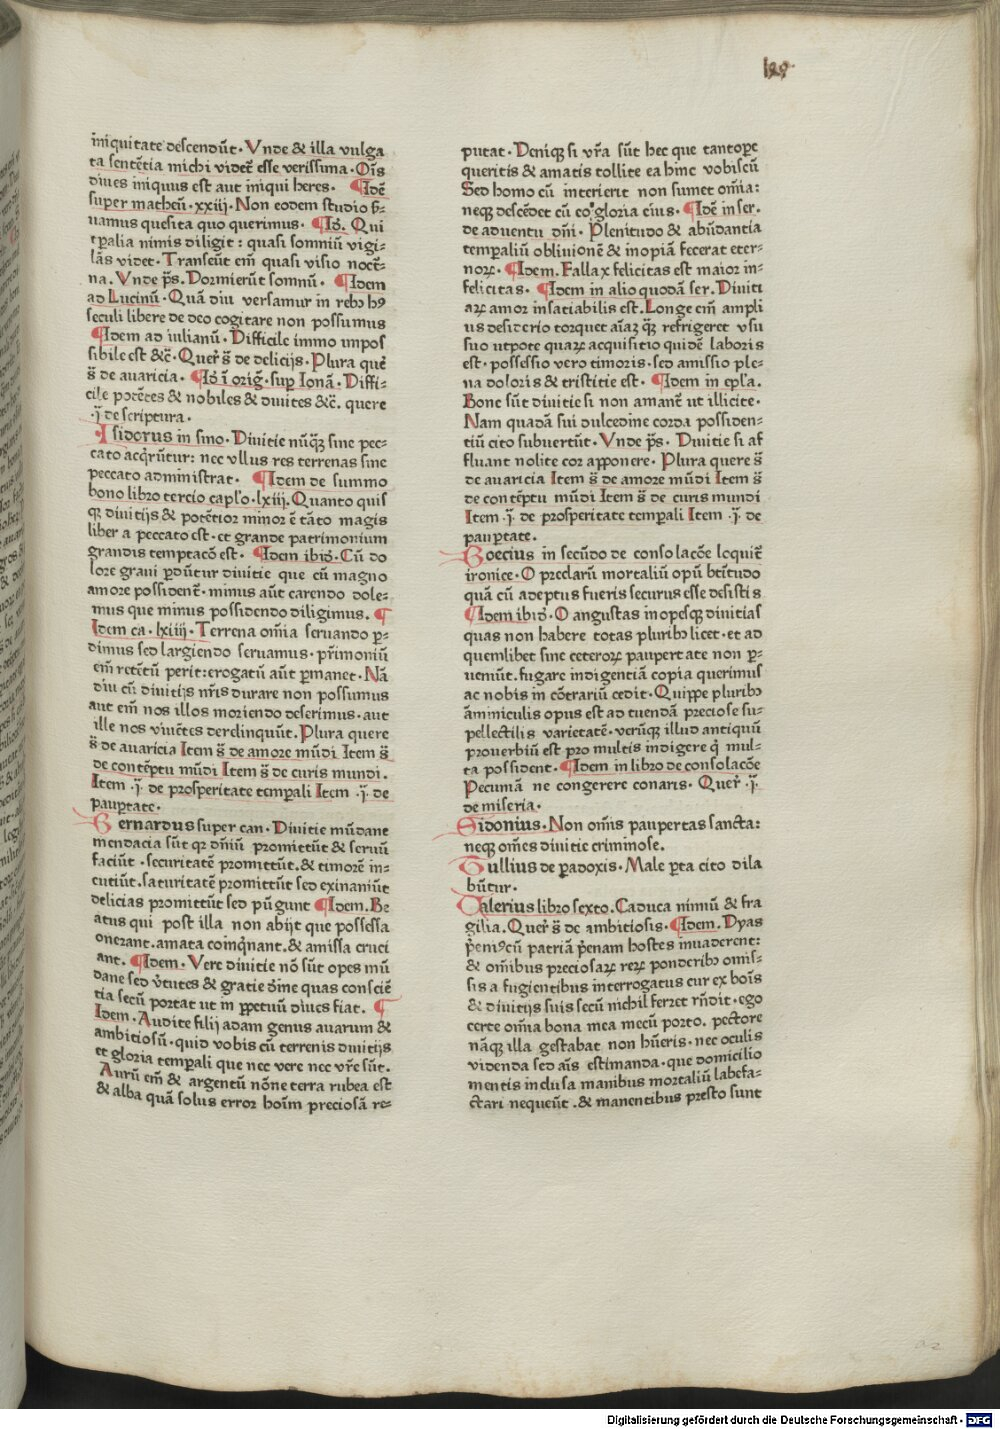 189
iniquitate descendūt. Vnde & illa vulga
ta sentētia michi videt᷑ esse verissima. Oīs
diues iniquus est aut iniqui heres. ¶Idē
super matheū. xxiij. Non eodem studio ẜ-
uamus quesita quo querimus. ¶Iō. Qui
tꝑalia nimis diligit : quasi somniū vigi-
lās videt. Transeūt em̄ quasi visio noct᷑-
na. Vnde p̄s. Dormierūt somnū. ¶Idem
ad Lucinū. Quā diu versamur in rebꝫ hꝰ
seculi libere de deo cogitare non possumus
¶Idem ad iulianū. Difficile immo impos
sibile est &c̄. Quer̄ s̄ de delicijs. Plura quē
s̄ de auaricia. ¶Iō ī oriḡ. sup̲ Ionā. Diffi-
cile potētes & nobiles & diuites &c̄. quere
.j̄. de scriptura.
Isidorus in sino. Diuitie nūq̄ꝫ sine pec-
cato acq̄rūtur: nec vllus res terrenas sine
peccato administrat. ¶Idem de summo
bono libro tercio cap̄l'o. lxiij. Quanto quis
qꝫ diuitijs & potētior minor ē tāto magis
liber a peccato est. et grande patrimonium
grandis temptacō est. ¶Idem ibid̄. Cū do
lore graui ꝑdūtur diuitie que cū magno
amore possident᷑. minus aūt carendo dole-
mus que minus possidendo diligimus. ¶
Idem ca. lxiiij. Terrena om̄ia seruando ꝑ-
dimus sed largiendo seruamus. pr̄imoniū
em̄ retētū perit: erogatū aūt ꝑmanet. Nā
diu cū diuitijs nr̄is durare non possumus
aut em̄ nos illos moriendo deserimus. aut
ille nos viuētes derelinquūt. Plura quere
s̄ de auaricia Item s̄ de amore mūdi Item s̄
de contēptu mūdi Item s̄ de curis mundi.
Item .j̄. de prosperitate temꝑali Item .j̄. de
pauꝑtate.
Bernardus super can. Diuitie mūdane
mendacia sūt qꝛ dn̄iū promittūt & seruū
faciūt. securitatē promittūt. & timorē in-
cutiūt. saturitatē promittūt sed exinaniūt
delicias promittūt sed pūgunt ¶Idem. Be
atus qui post illa non abijt que possessa
onerant. amata coinq̄nant. & amissa cruci
ant. ¶Idem. Vere diuitie nō sūt opes mū
dane sed v̄tutes & gratie dīne quas consciē
tia secū portat ut in ꝑpetuū diues fiat. ¶
Idem. Audite filij adam genus auarum &
ambitiosū. quid vobis cū terrenis diuitijs
et gloria temꝑali que nec vere nec vr̄e sūt.
Aurū em̄ & argentū nōne terra rubea est
& alba quā solus error hoīm preciosā re-
putat. Deniqꝫ si vr̄a sūt hec que tantoꝑe
queritis & amatis tollite ea hinc vobiscū
Sed homo cū interierit non sumet om̄ia:
neqꝫ descēdet cū eo gloria eius. ¶Idē in ser.
de aduentu dn̄i. Plenitudo & abūdantia
temꝑaliū obliuionē & inopiā fecerat eter-
noꝝ. ¶Idem. Fallax felicitas est maior in-
felicitas. ¶Idem in alio quodā ser. Diuiti
aꝝ amor insatiabilis est. Longe em̄ ampli
us desiderio torquet aīaꝫ q̄ꝫ refrigeret vsu
suo utpote quaꝝ acquisitio quidē laboris
est. possessio vero timoris. sed amissio ple-
na doloris & tristitie est. ¶Idem in ep̄l'a.
Bone sūt diuitie si non amant᷑ ut illicite.
Nam quadā sui dulcedine corda possiden-
tiū cito subuertūt. Vnde p̄s. Diuitie si af
fluant nolite cor apponere. Plura quere s̄
de auaricia Item s̄ de amore mūdi Item s̄
de contēptu mūdi Item s̄ de curis mundi
Item .j̄. de prosperitate temꝑali Item .j̄. de
pauꝑtate.
Boecius in secūdo de consolacōe loquit᷑
ironice. O preclarū mortaliū opū bt̄itudo
quā cū adeptus fueris securus esse desistis
¶Idem ibid̄. O angustas inopesqꝫ diuitias
quas non habere totas pluribꝫ licet. et ad
quemlibet sine ceteroꝝ paupertate non ꝑ-
ueniūt. fugare indigentiā copia querimus
ac nobis in cōtrariū cedit. Quippe pluribꝫ
āminiculis opus est ad tuendā preciose su-
pellectilis varietatē. verūqꝫ illud antiquū
prouerbiū est pro multis indigere q̄ mul-
ta possident. ¶Idem in libro de consolacōe
Pecumā ne congerere conaris. Quer̄ .j̄.
de miseria.
Sidonius. Non om̄is paupertas sancta:
neqꝫ om̄es diuitie criminose.
Tullius de ꝑadoxis. Male ꝑta cito dila
būtur.
Valerius libro sexto. Caduca nimiū & fra
gilia. Quer̄ s̄ de ambitiosis. ¶Idem. Dyas
p̄eniꝰ cū patriā p̄enam hostes inuaderent:
& om̄ibus preciosaꝝ reꝝ ponderibꝫ omis-
sis a fugientibus interrogatus cur ex boīs
& diuitijs suis secū nichil ferret rn̄dit. ego
certe om̄ia bona mea mecū porto. pectore
nāqꝫ illa gestabat non hūeris. nec oculis
videnda sed aīs estimanda. que domicilio
mentis inclusa manibus mortaliū labefa-
ctari nequeūt. & manentibus presto sunt
Digitalisierung gefördert durch die Deutsche Forschungsgemeinschaft - DFG